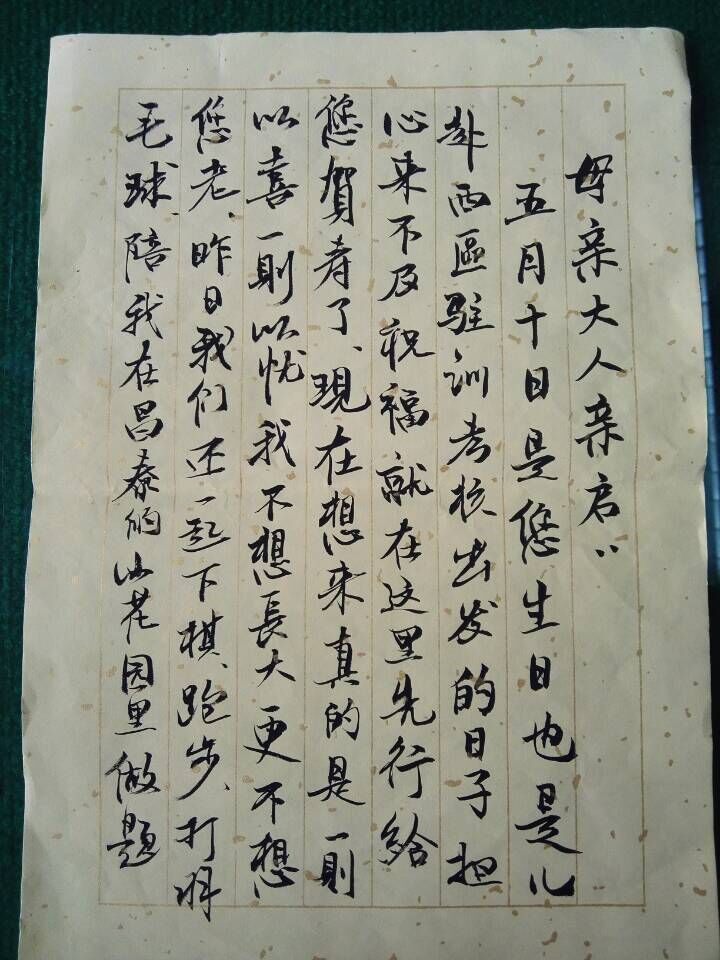 母亲大人亲启：
五月十日是您生日也是儿
赴西區驻训考核出发的日子担
心来不及祝福就在这里先行給
您賀寿了、現在想来真的是一則
以喜一則以忧我不想長大更不想
您老、昨日我们还一起下棋、跑步、打羽
毛球、陪我在昌泰的小花园里做题